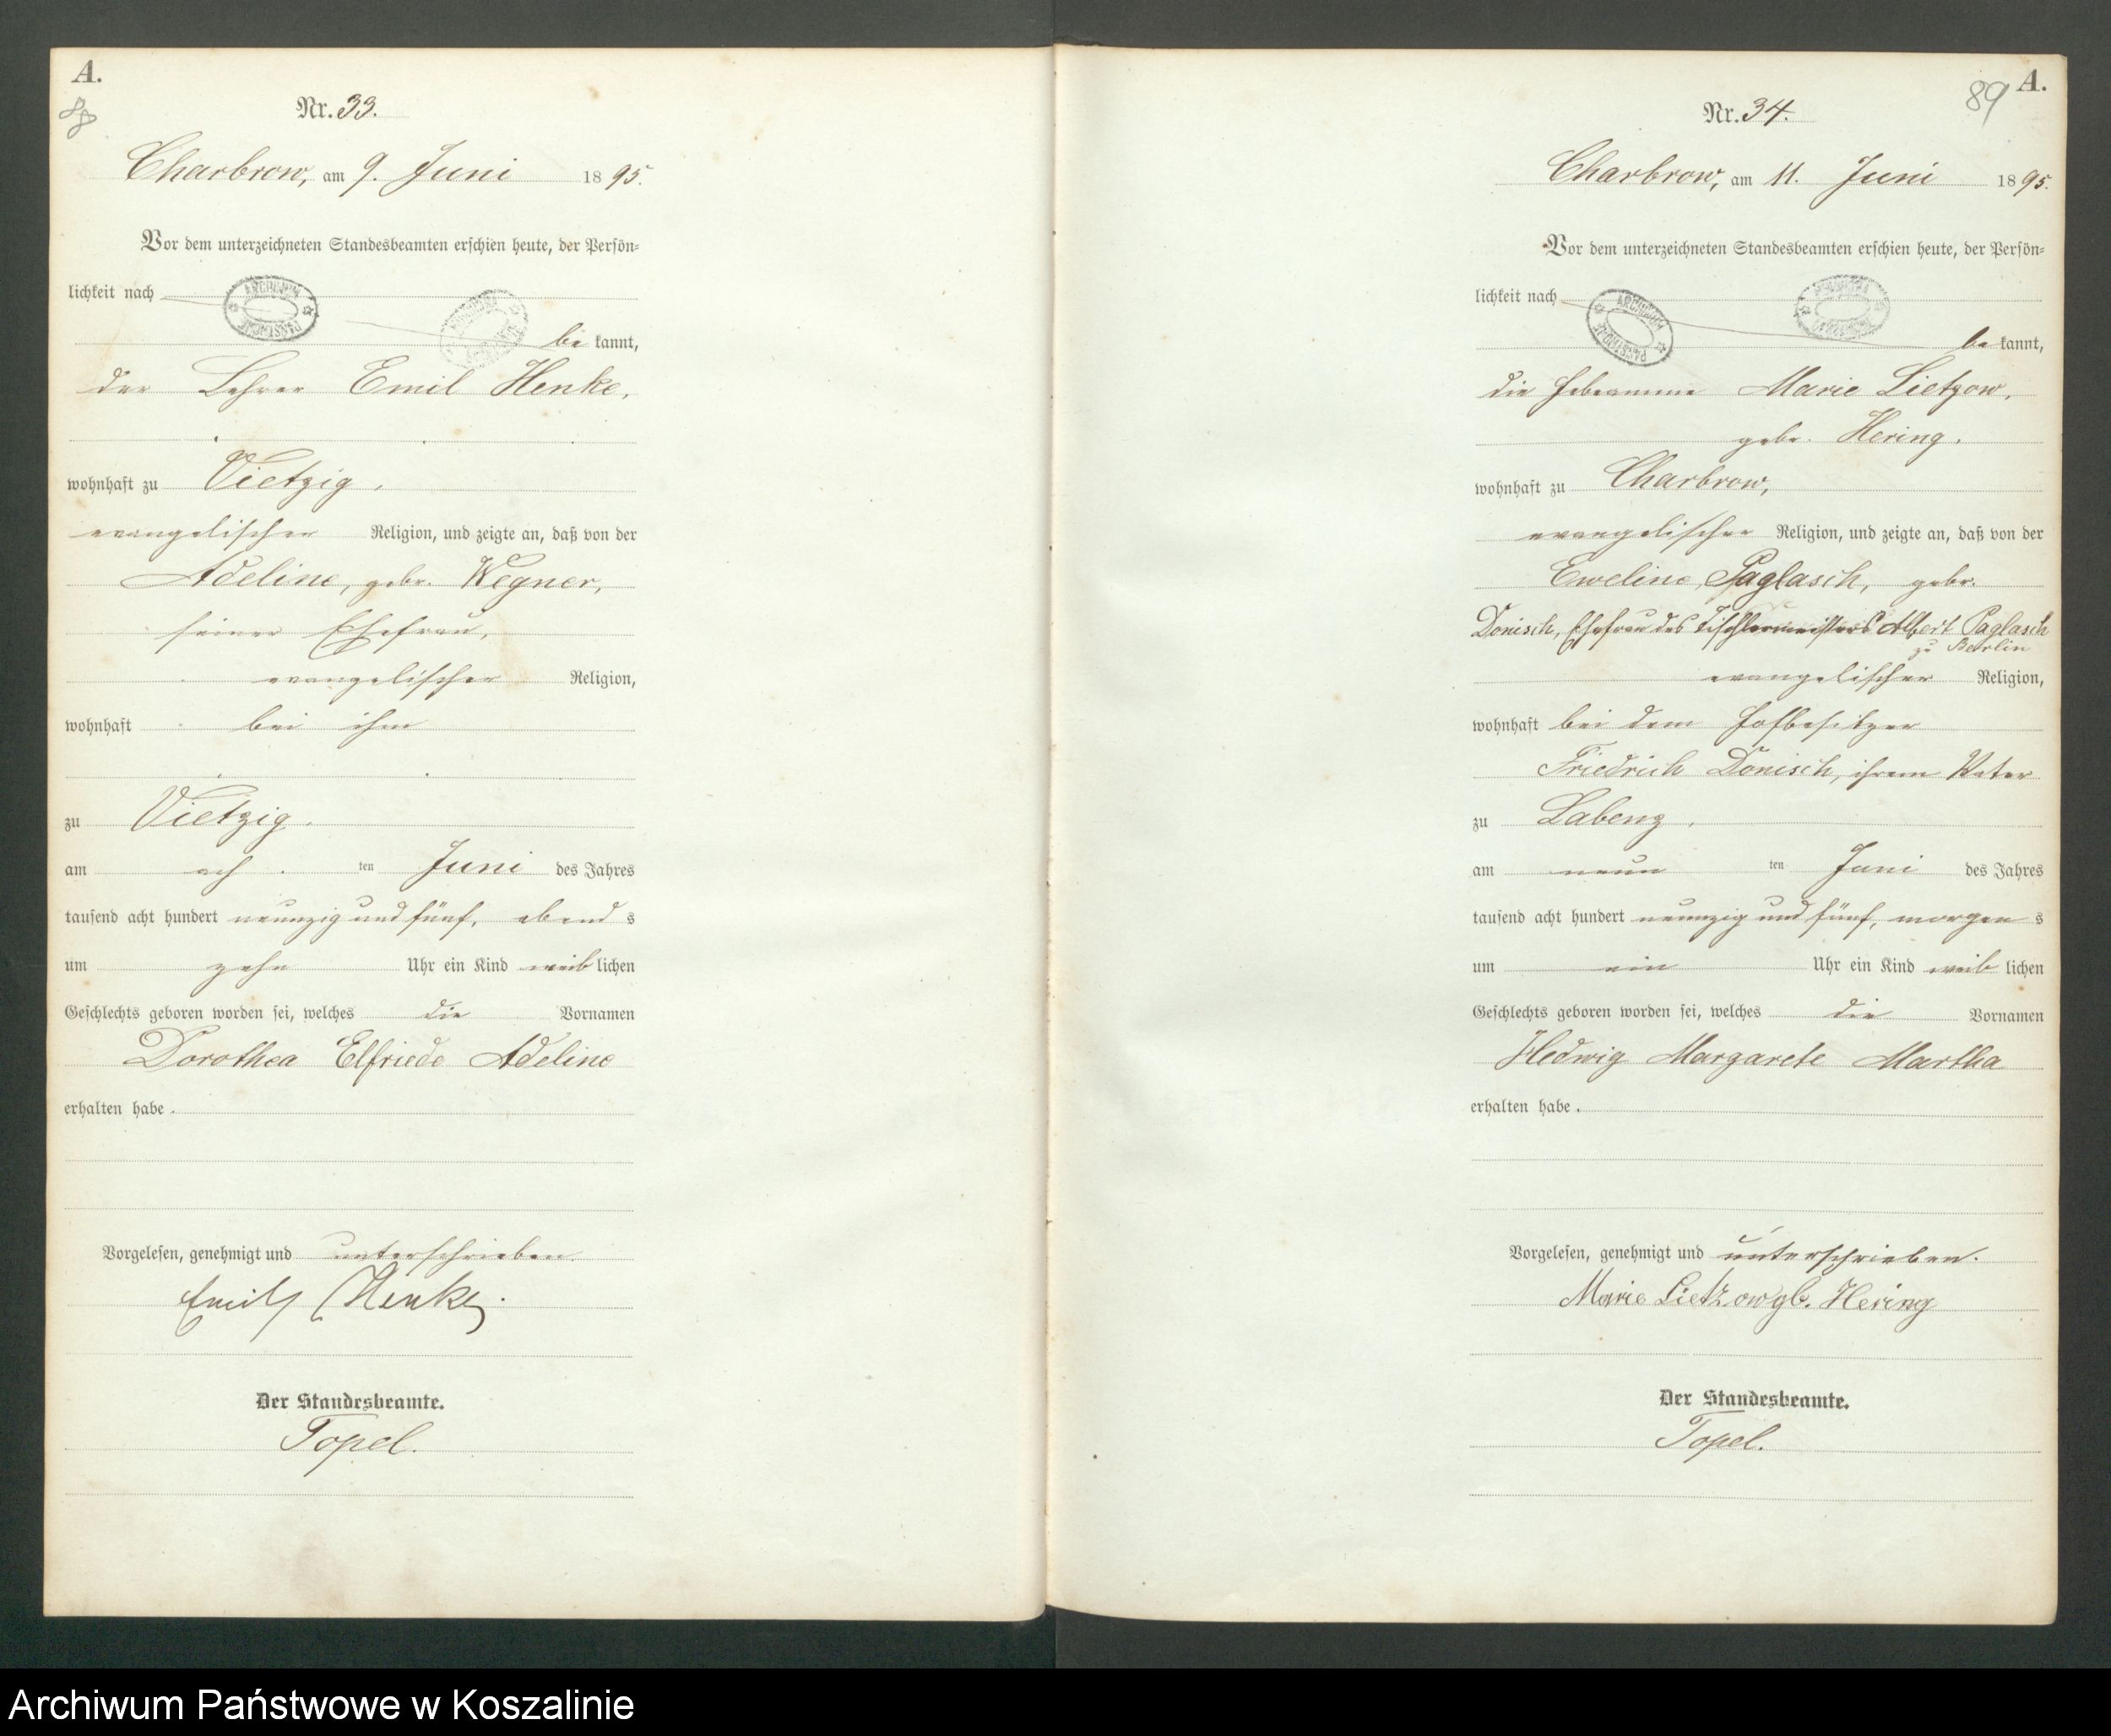 A.
88
Nr. 33.
Charbrow, am 9. Juni 1895.
Vor dem unterzeichneten Standesbeamten erschien heute, der Persön-
lichkeit nach
be kannt,
der Lehrer Emil Henke,
wohnhaft zu Vietzig,
evangelischer Religion, und zeigte an, daß von der
Adeline, gebr. Wegner,
seiner Ehefrau,
evangelischer Religion,
wohnhaft bei ihm
zu Vietzig,
am ach ten Juni des Jahres
tausend acht hundert neunzig und fünf, abend s
um zehn Uhr ein Kind weib lichen
Geschlechts geboren worden sei, welches die Vornamen
Dorothea Elfriede Adeline
erhalten habe.
Vorgelesen, genehmigt und unterschrieben.
Emil Henke.
Der Standesbeamte.
Topel.
A.
89
Nr. 34.
Charbrow, am 11. Juni 1895.
Vor dem unterzeichneten Standesbeamten erschien heute, der Persön-
lichkeit nach
be kannt,
die Hebeamme Marie Lietzow,
gebr. Hering,
wohnhaft zu Charbrow,
evangelischer Religion, und zeigte an, daß von der
Eweline Paglasch, gebr.
Donisch, Ehefrau des Tischlermeisters Albert Paglasch
zu Berlin
evangelischer Religion,
wohnhaft bei dem Hofbesitzer
Friedrich Donisch, ihrem Vater
zu Labenz,
am neun ten Juni des Jahres
tausend acht hundert neunzig und fünf, morgen s
um ein Uhr ein Kind weib lichen
Geschlechts geboren worden sei, welches die Vornamen
Hedwig Margarete Martha
erhalten habe.
Vorgelesen, genehmigt und unterschrieben.
Marie Lietzow gb. Hering
Der Standesbeamte.
Topel.
Archiwum Państwowe w Koszalinie